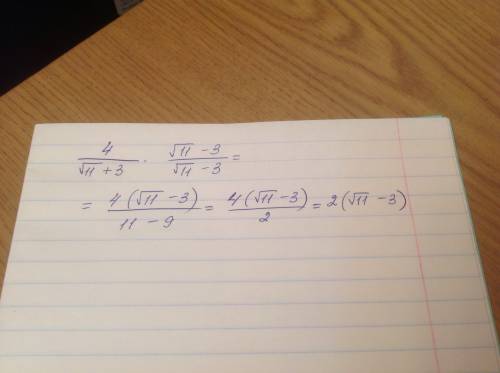 4/(√11 + 3) · (√11 - 3)/(√11 - 3) =
= 4(√11 - 3)/(11 - 9) = 4(√11 - 3)/2 = 2(√11 - 3)